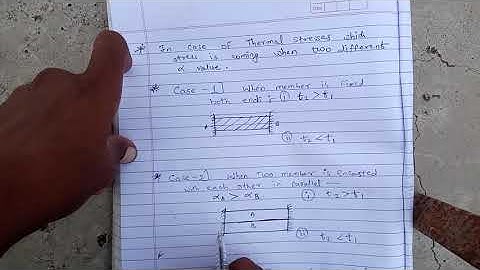 * In case of Thermal stresses which
stress is coming when two different
α value.
* Case-1] When member is fixed
both ends; (i) t₂ > t₁
A B
(ii) t₂ < t₁
* Case-2] When Two member is
with each other in parallel
α_A > α_B (i) t₂ > t₁
A
B
(ii) t₂ < t₁